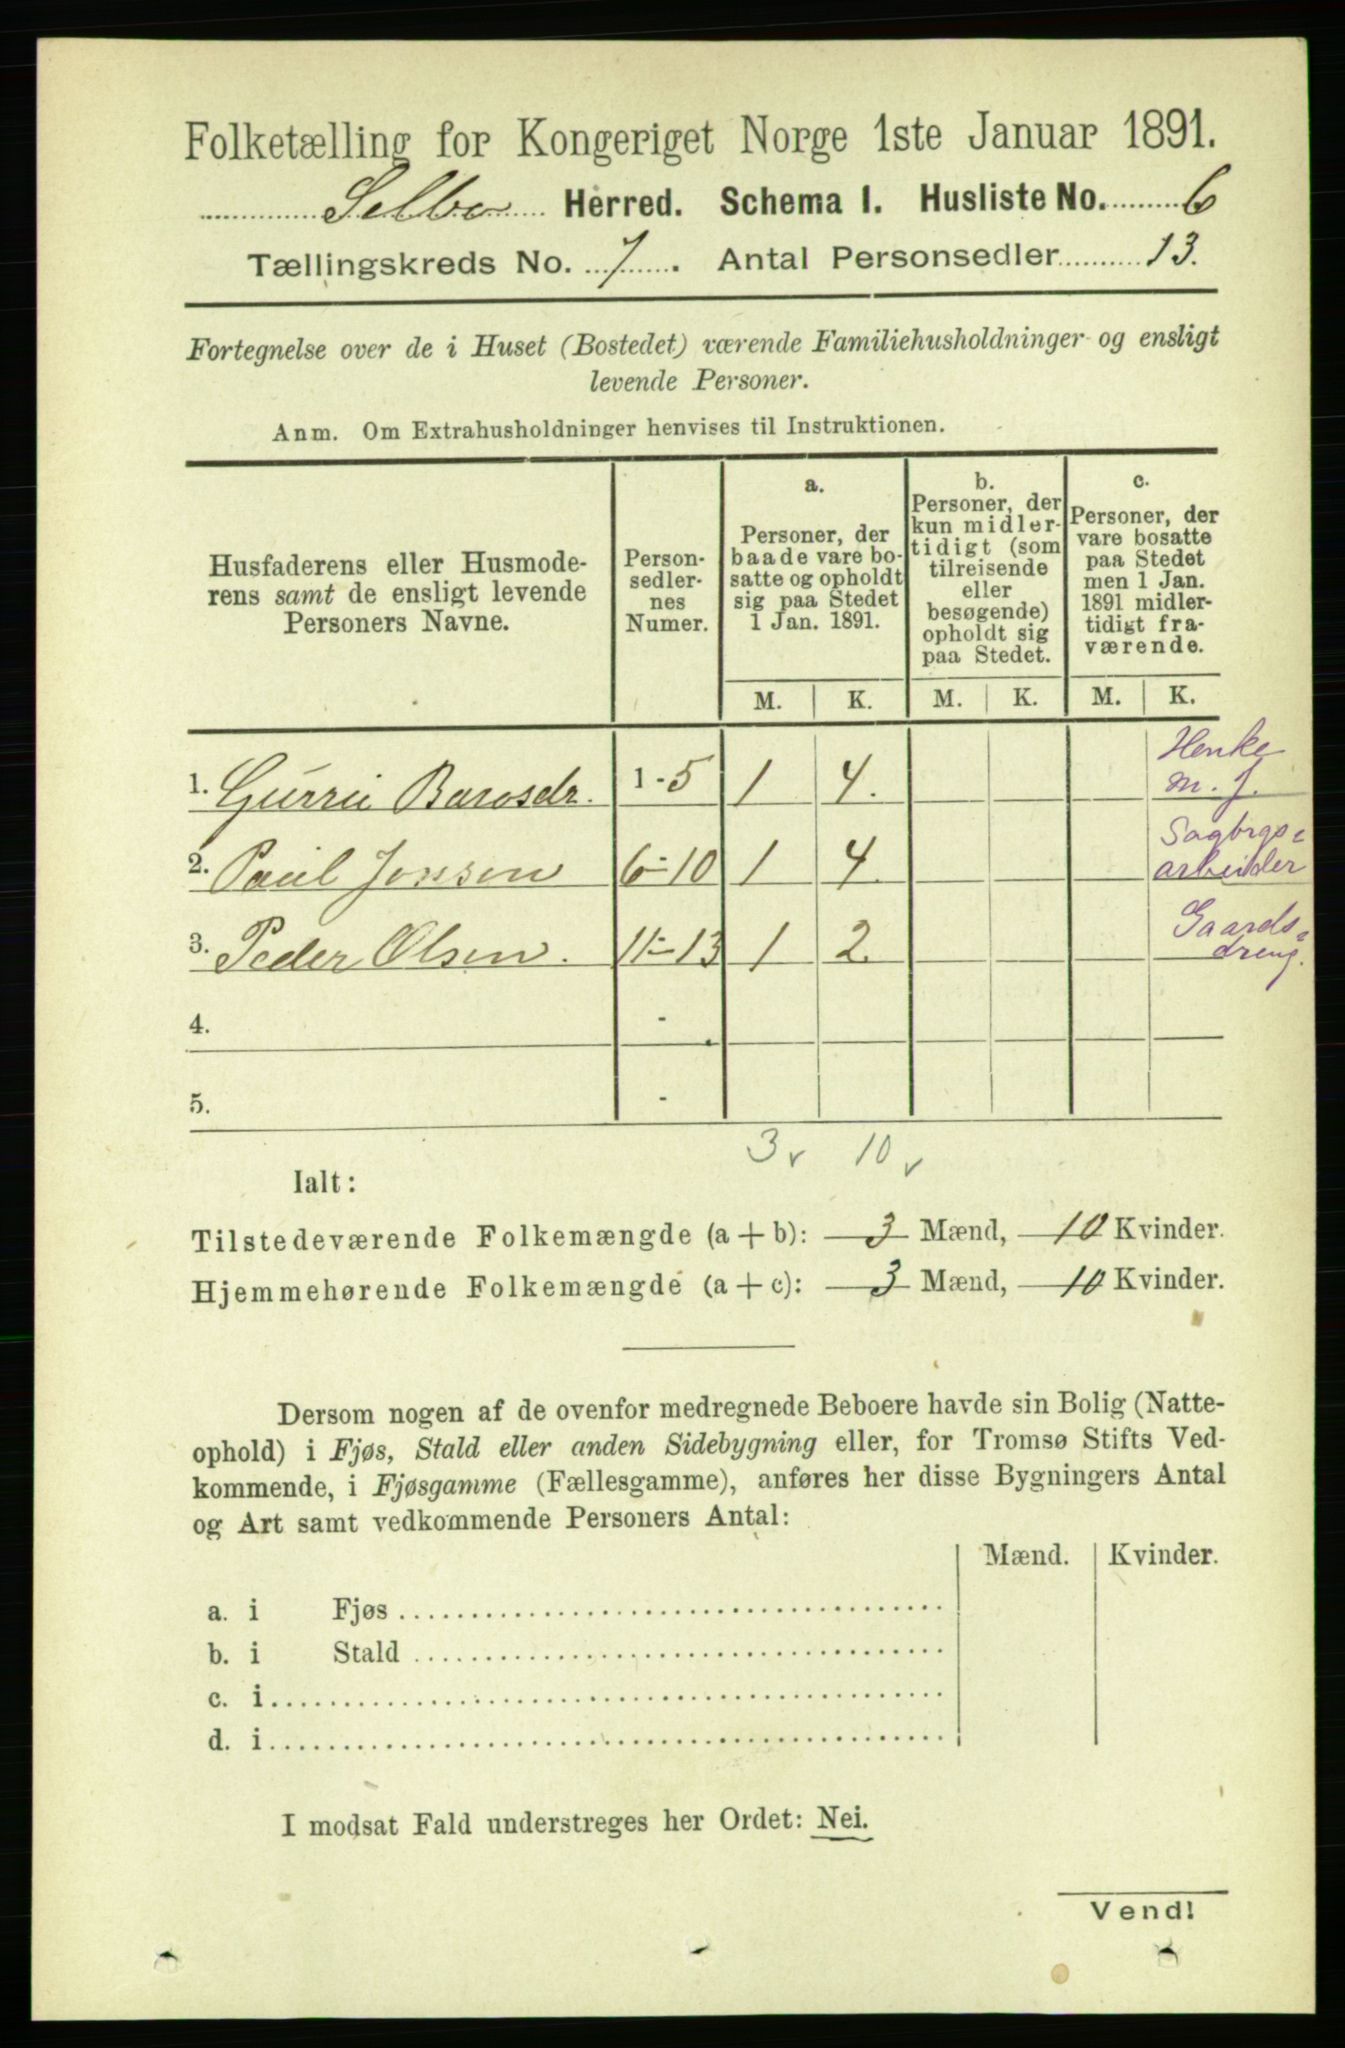 Folketælling for Kongeriget Norge 1ste Januar 1891.
Selbo Herred. Schema I. Husliste No. 6
Tællingskreds No. 7. Antal Personsedler 13.
Fortegnelse over de i Huset (Bostedet) værende Familiehusholdninger og ensligt
levende Personer.
Anm. Om Extrahusholdninger henvises til Instruktionen.
Husfaderens eller Husmode-
rens samt de ensligt levende
Personers Navne.
Person-
sedler-
nes
Numer.
a.
Personer, der
baade vare bo-
satte og opholdt
sig paa Stedet
1 Jan. 1891.
b.
Personer, der
kun midler-
tidigt (som
tilreisende
eller
besøgende)
opholdt sig
paa Stedet.
c.
Personer, der
vare bosatte
paa Stedet
men 1 Jan.
1891 midler-
tidigt fra-
værende.
M. K. M. K. M. K.
Henke
1. Gurrii Barosdr. 1-5 1 4. m. J.
Sagbrgs-
2. Paul Jonsen 6-10 1 4. arbeider
Gaards-
3. Peder Olsen. 11-13 1 2. dreng.
4. -
5. -
3 10
Ialt:
Tilstedeværende Folkemængde (a + b): 3 Mænd, 10 Kvinder.
Hjemmehørende Folkemængde (a + c): 3 Mænd, 10 Kvinder.
Dersom nogen af de ovenfor medregnede Beboere havde sin Bolig (Natte-
ophold) i Fjøs, Stald eller anden Sidebygning eller, for Tromsø Stifts Ved-
kommende, i Fjøsgamme (Fællesgamme), anføres her disse Bygningers Antal
og Art samt vedkommende Personers Antal:
Mænd. Kvinder.
a. i Fjøs
b. i Stald
c. i
d. i
I modsat Fald understreges her Ordet: Nei.
Vend!